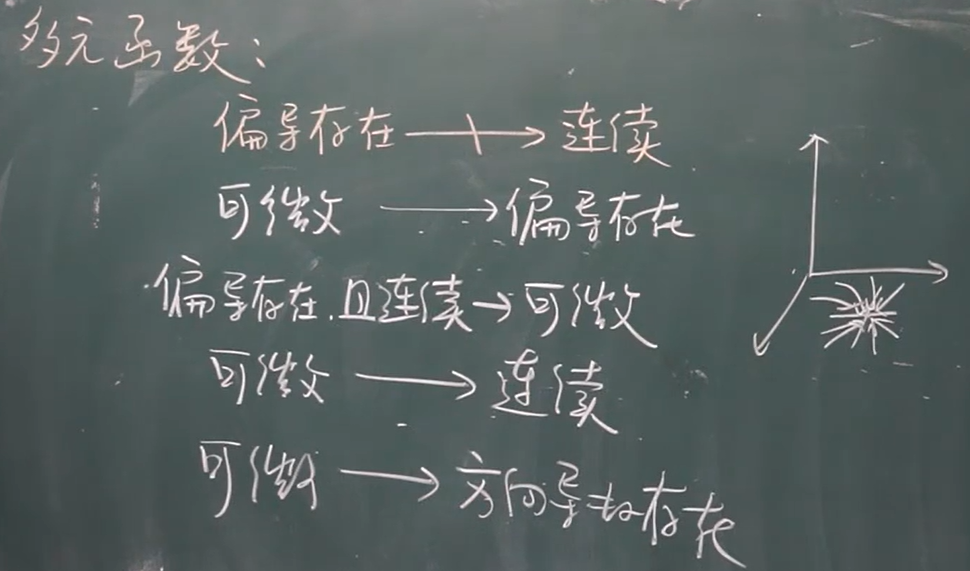 多元函数：
偏导存在 ↛ 连续
可微 → 偏导存在
偏导存在.且连续 → 可微
可微 → 连续
可微 → 方向导数存在